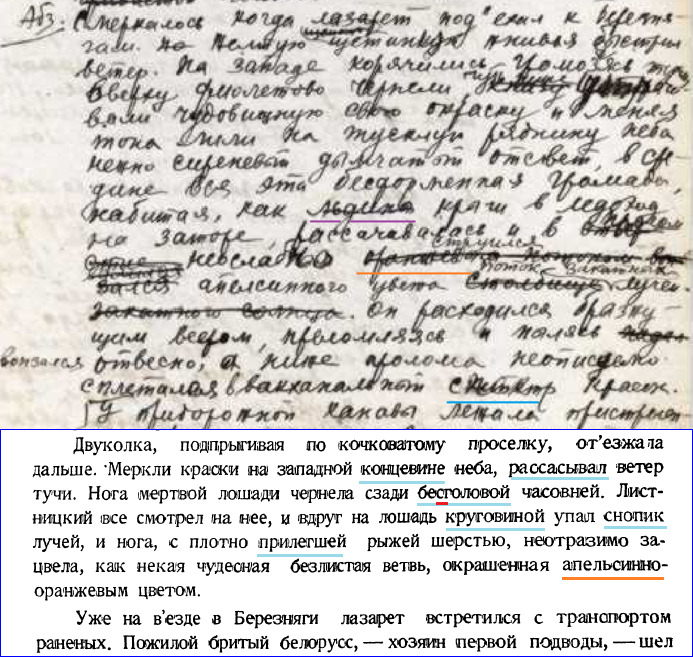 Абз. Смеркалось когда лазарет под'ехал к Березня-
гам. щетинил жнивья быстрил
ветер. На западе корячились громоздясь тучи
Вверху фиолетово чернели чуть ниже
вали чудовищную свою окраску и меняя
тона лили на тусклую ряднину неба
нежно сиреневый дымчатый отсвет, в сре-
дине вся эта бесформенная громада,
набитая, как льдина крыги в ледоход
на заторе, рассачивалась и в пролом
неослабно струился
апельсинного цвета поток закатных лучей.
закатного солнца. Он расходился брызжу-
щим веером, преломляясь и пылясь
вонзался отвесно, а ниже пролома неописуемо
сплетался в вакханальный спектр красок.
У придорожной канавы лежала пристрел
Двуколка, подпрыгивая по кочковатому проселку, от'езжала
дальше. Меркли краски на западной концевине неба, рассасывал ветер
тучи. Нога мертвой лошади чернела сзади бесголовой часовней. Лист-
ницкий все смотрел на нее, и вдруг на лошадь круговиной упал снопик
лучей, и нога, с плотно прилегшей рыжей шерстью, неотразимо за-
цвела, как некая чудесная безлистая ветвь, окрашенная апельсинно-
оранжевым цветом.
Уже на в'езде в Березняги лазарет встретился с транспортом
раненых. Пожилой бритый белорусс, — хозяин первой подводы, — шел